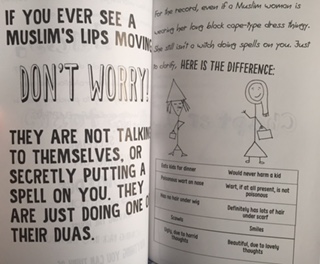 IF YOU EVER SEE A
MUSLIM'S LIPS MOVING
DON'T WORRY!
THEY ARE NOT TALKING
TO THEMSELVES, OR
SECRETLY PUTTING A
SPELL ON YOU. THEY
ARE JUST DOING ONE O
THEIR DUAS.
For the record, even if a Muslim woman is
wearing her long black cape-type dress thingy.
She still isn't a witch doing spells on you. Just
to clarify, HERE IS THE DIFFERENCE:
Eats kids for dinner Would never harm a kid
Poisonous wart on nose Wart, if at all present, is not poisonous
Has no hair under wig Definitely has lots of hair under scarf
Scowls Smiles
Ugly, due to horrid thoughts Beautiful, due to lovely thoughts